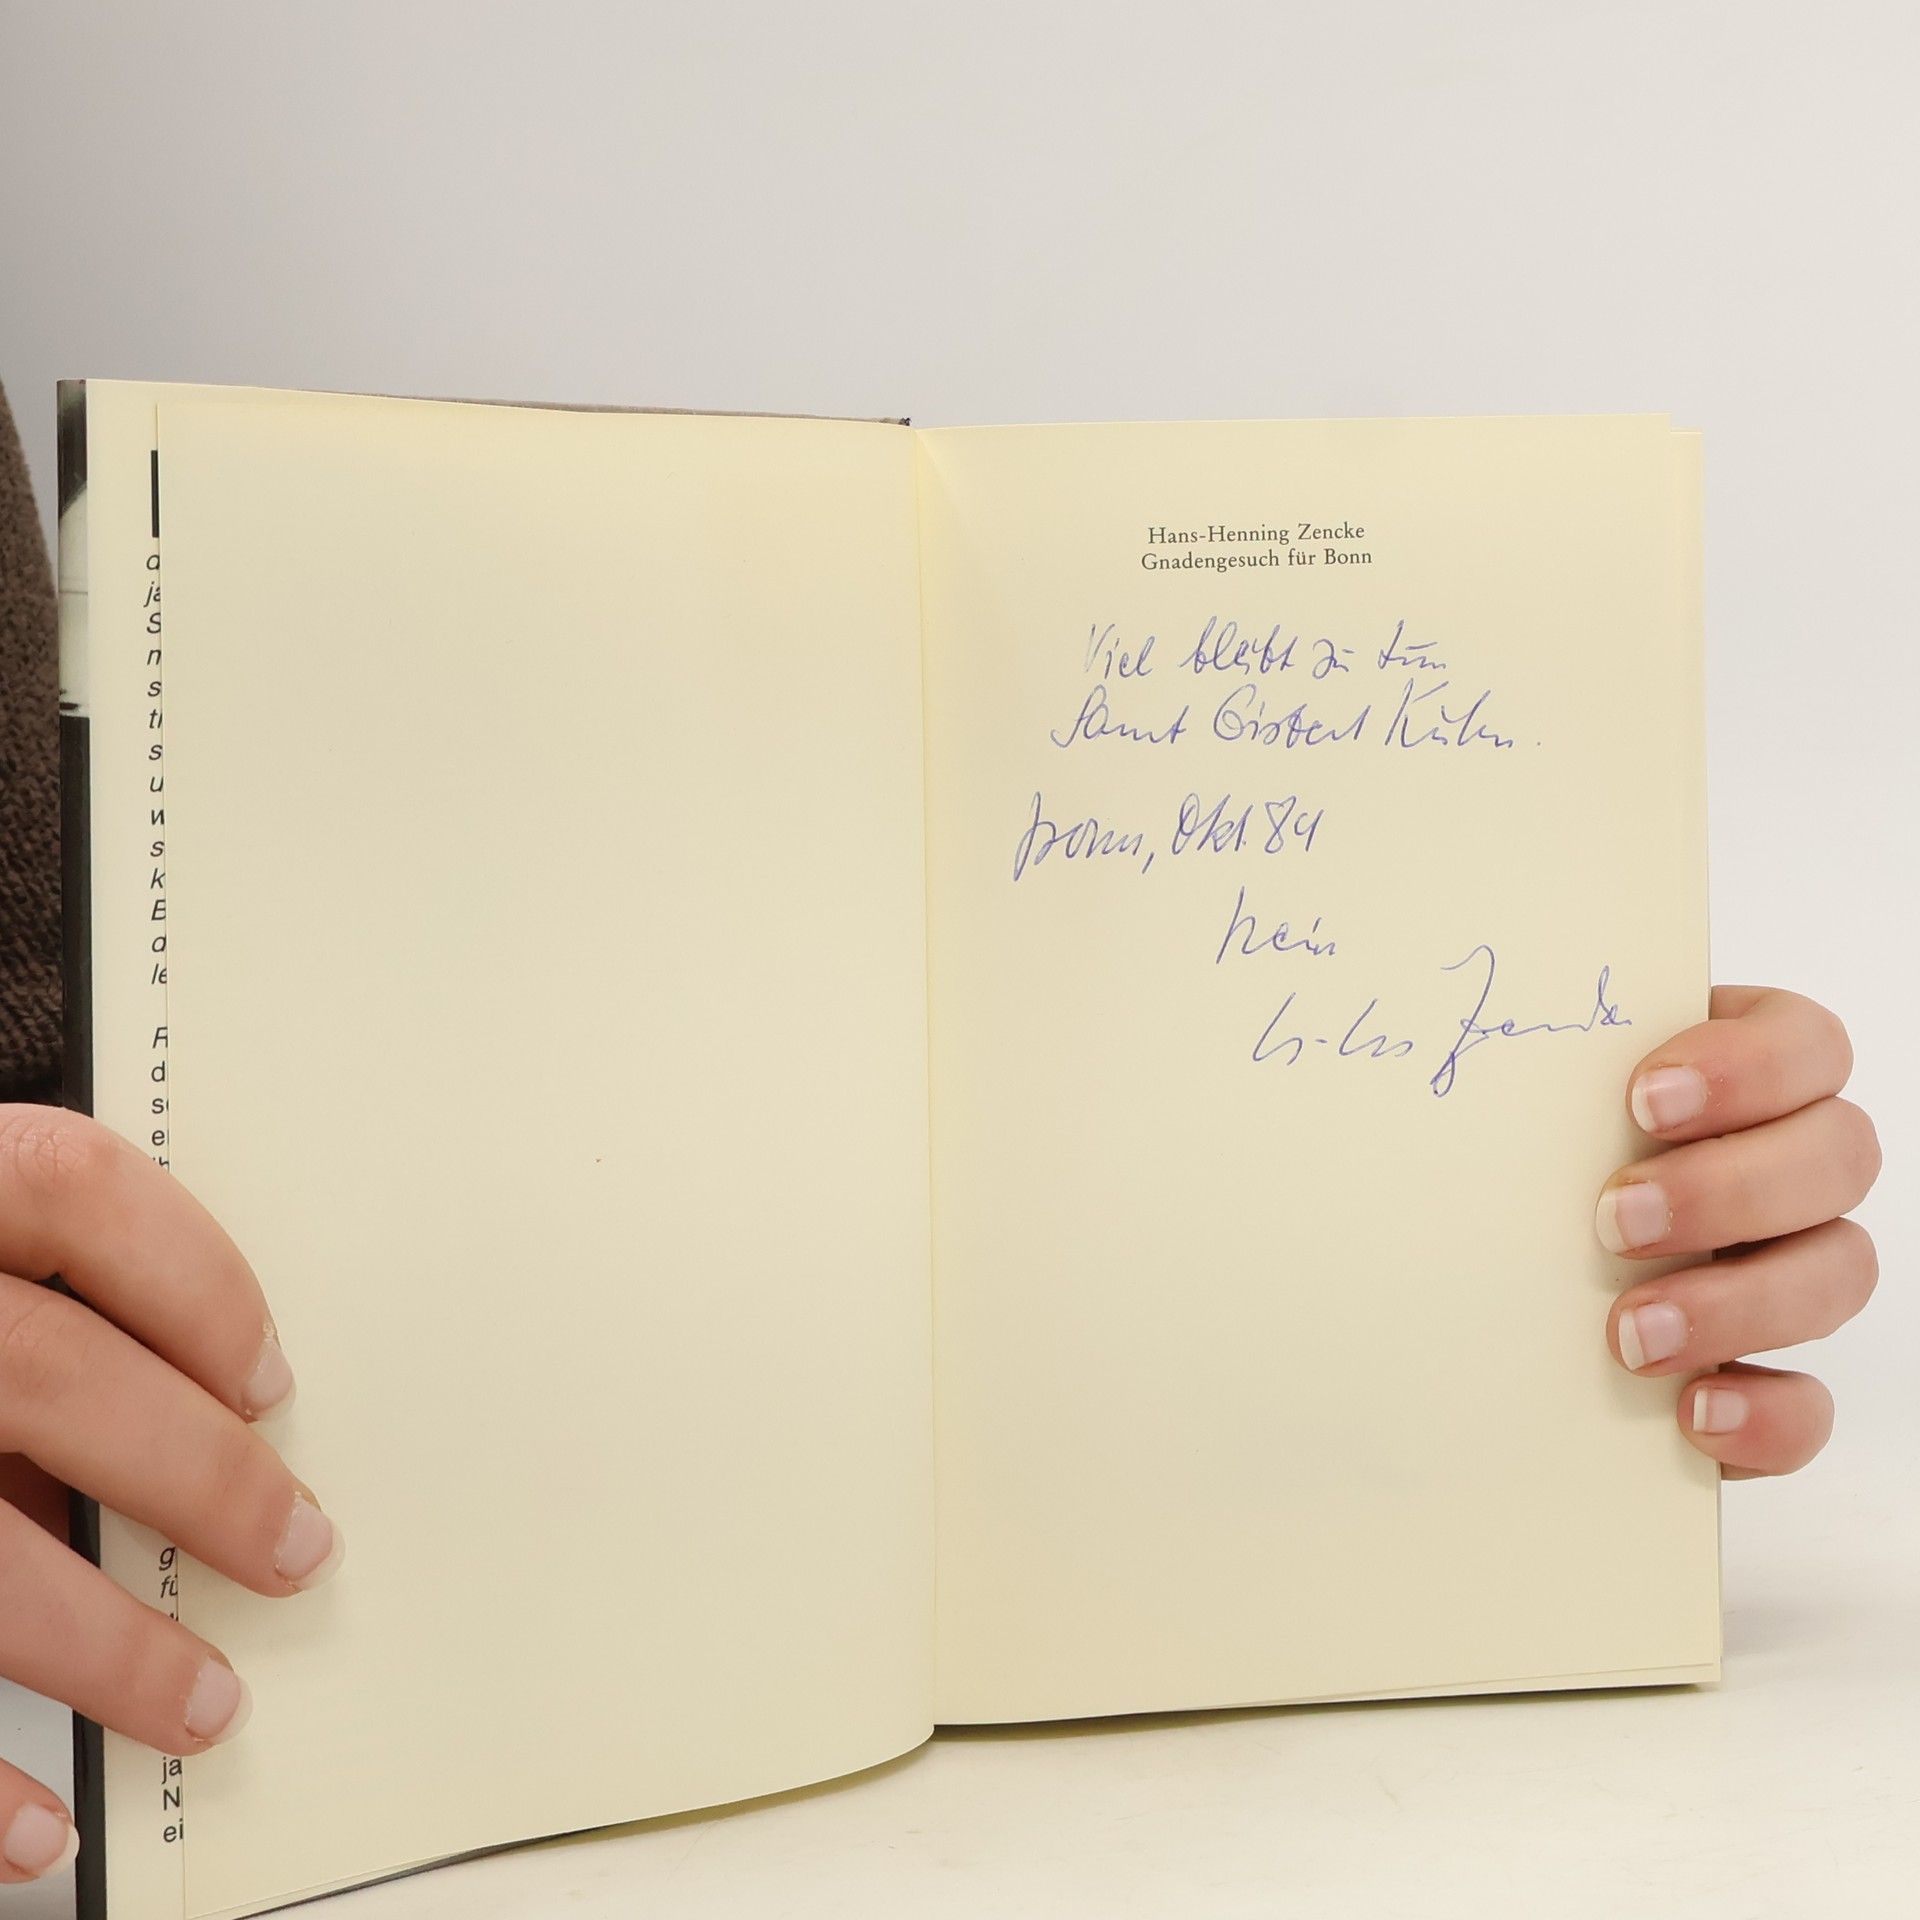 Hans-Henning Zencke
Gnadengesuch für Bonn
Viel bleibt zu tun
Samt Gisbert Kuhn.
Bonn, Okt. 84
Zencke
d
ja
S
n
s
s
u
w
s
k
E
d
le
F
d
se
e
g
fü
ja
N
ei